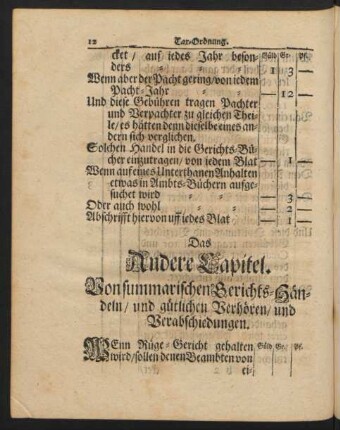 12 Tax-Ordnung.
cket / auf jedes Jahr beson- Güld Gr. Pf.
ders 1 3 —
Wenn aber der Pacht gering / von jedem
Pacht-Jahr — 12 —
Und diese Gebühren tragen Pachter
und Verpachter zu gleichen Thei-
le / es hätten denn dieselbe eines an-
dern sich verglichen.
Solchen Handel in die Gerichts-Bü-
cher einzutragen / von jedem Blat — 1 —
Wenn auf eines Unterthanen Anhalten
etwas in Ambts-Büchern aufge-
suchet wird — 3 —
Oder auch wohl — 2 —
Abschrifft hiervon uff jedes Blat — 1 —
Das
Andere Capitel.
Von summarischen Gerichts-Hän-
deln / und gütlichen Verhören / und
Verabschiedungen.
WEnn Rüge-Gericht gehalten Güld. Gr. Pf.
wird / sollen denen Beambten von
ei-